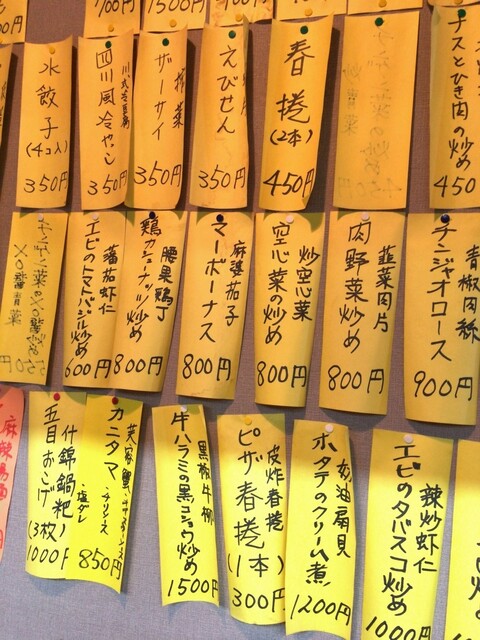 水餃子
(4コ入)
350円
川式冷豆腐
四川風冷やっこ
350円
搾菜
ザーサイ
350円
えびせん
350円
春捲
(2本)
450円
ナスとひき肉の炒め
450
蕃茄虾仁
エビのトマトバジル炒め
600円
腰果鶏丁
鶏カシューナッツ炒め
800円
麻婆茄子
マーボーナス
800円
炒空心菜
空心菜の炒め
800円
韮菜肉片
肉野菜炒め
800円
青椒肉絲
チンジャオロース
900円
什錦鍋粑
五目おこげ
(3枚)
1000円
芙容蟹
カニタマ
・チリソース
・塩ダレ
850円
黒椒牛柳
牛ハラミの黒コショウ炒め
1500円
皮炸春捲
ピザ春捲
(1本)
300円
奶油扇貝
ホタテのクリーム煮
1200円
辣炒虾仁
エビのタバスコ炒め
1000円